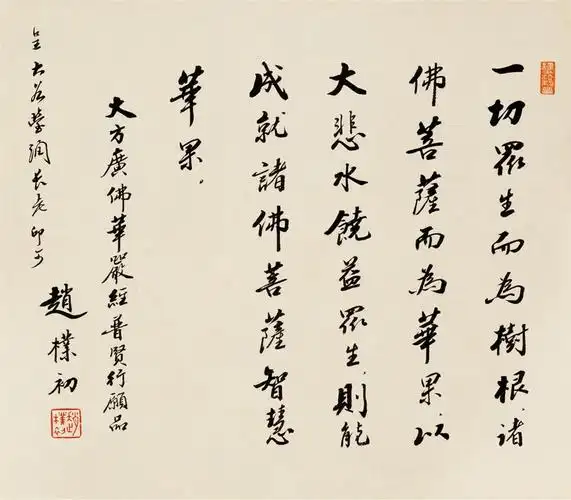 一切眾生而為樹根，諸
佛菩薩而為華果，以
大悲水饒益眾生，則能
成就諸佛菩薩智慧
華果。
大方廣佛華嚴經普賢行願品
呈大谷瑩潤長老印可
趙樸初
趙樸初